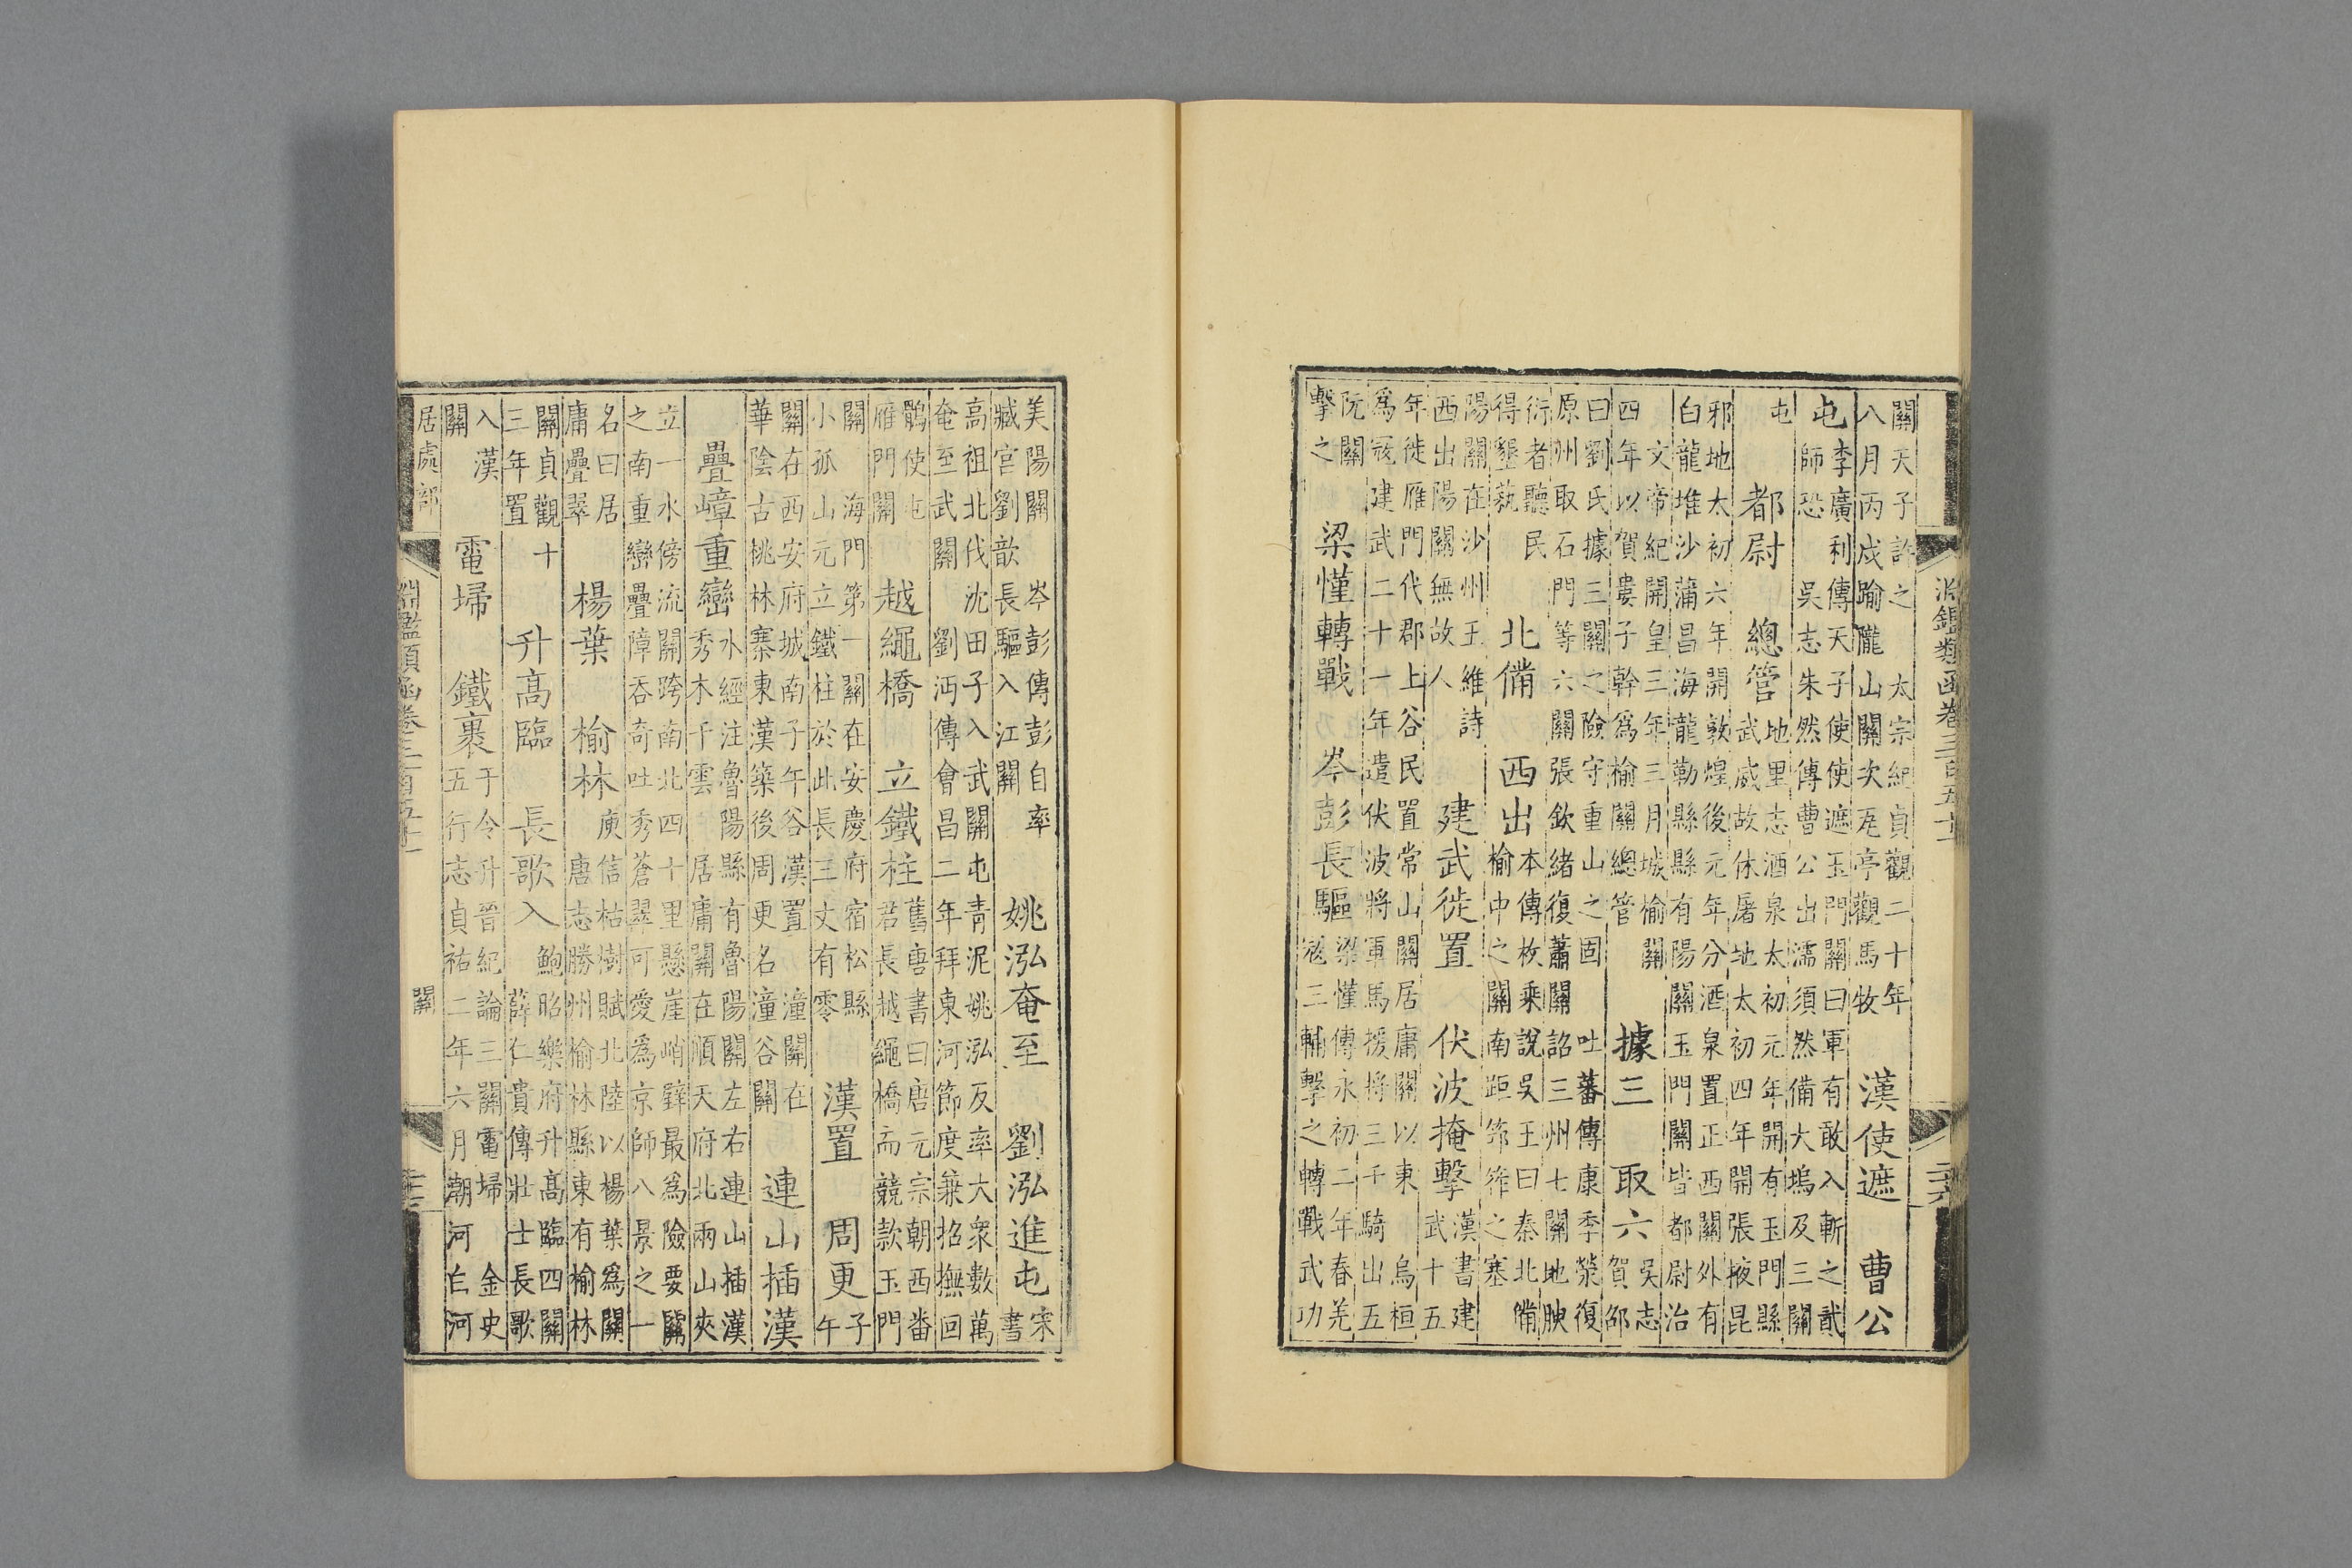 淵鑑類函卷三百五十一
關天子許之　太宗紀貞觀二十年八月丙戌踰隴山關次瓦亭觀馬牧　漢使遮　曹公
屯　李廣利傳天子使使遮玉門關曰軍有敢入斬之貳師恐　吳志朱然傳曹公出濡須然備大塢及三關
屯　都尉　總管　地里志酒泉太初元年開有玉門縣武威故休屠地太初四年開張掖昆
邪地太初六年開敦煌後元年分酒泉置正西關外有白龍堆沙蒲昌海龍勒縣縣有陽關玉門關皆都尉治
文帝紀開皇三年三月城榆關四年以賀婁子幹爲榆關總管　據三　取六　吳志賀邵
曰劉氏據三關之險守重山之固　吐蕃傳康季榮復原州取石門等六關張欽緒復蕭關詔三州七關地腴
衍者聽民得墾蓺　北備　西出　本傳枚乘說吳王曰秦北備榆中之關南距筰筰之塞
陽關在沙州王維詩西出陽關無故人　建武徙置　伏波掩擊　漢書建武十五
年徙雁門代郡上谷民置常山關居庸關以東　烏桓爲寇建武二十一年遣伏波將軍馬援將三千騎出五
阮關擊之　梁慬轉戰　岑彭長驅　梁慬傳永初二年春羌寇三輔擊之轉戰武功
美陽關　岑彭傳彭自率臧宮劉歆長驅入江關　姚泓奄至　劉泓進屯　宋書
高祖北伐沈田子入武關屯青泥姚泓反率大衆數萬奄至武關　劉沔傳會昌二年拜東河節度兼招撫回
鶻使屯雁門關　越繩橋　立鐵柱　舊唐書曰唐元宗朝西番君長越繩橋而競款玉門
關　海門第一關在安慶府宿松縣小孤山元立鐵柱於此長三丈有零　漢置　周更　子午
關在西安府城南子午谷漢置　潼關在華陰古桃林寨東漢築後周更名潼谷關　連山插漢
疊嶂重巒　水經注魯陽縣有魯陽關左右連山插漢秀木千雲　居庸關在順天府北兩山夾
立一水傍流關跨南北四十里懸崖峭壁最爲險要關之南重巒疊障吞奇吐秀蒼翠可愛爲京師八景之一
名曰居庸疊翠　楊葉　榆林　庾信枯樹賦北陸以楊葉爲關唐志勝州榆林縣東有榆林
關貞觀十三年置　升髙臨　長歌入　鮑昭樂府升髙臨四關薛仁貴傳壯士長歌
入漢關　電埽　鐵裹　于令升晉紀論三關電埽　金史五行志貞祐二年六月潮河白河
居處部　淵鑑類函卷三百五十一　關